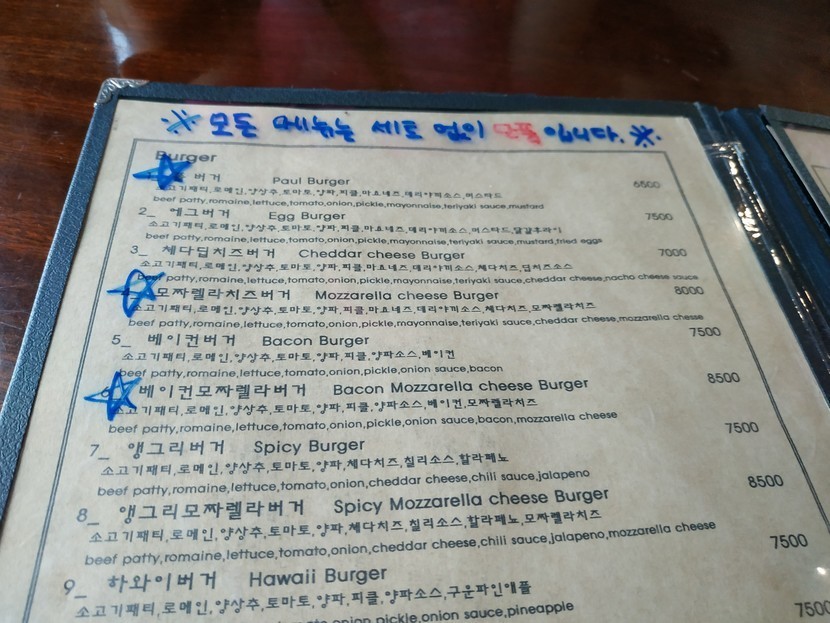 ※ 모든 메뉴는 세트 없이 단품 입니다. ※
Burger
버거 Paul Burger 6500
소고기패티,로메인,양상추,토마토,양파,피클,마요네즈,데리야끼소스,머스타드
beef patty,romaine,lettuce,tomato,onion,pickle,mayonnaise,teriyaki sauce,mustard
2_ 에그버거 Egg Burger 7500
소고기패티,로메인,양상추,토마토,양파,피클,마요네즈,데리야끼소스,머스타드,달걀후라이
beef patty,romaine,lettuce,tomato,onion,pickle,mayonnaise,teriyaki sauce,mustard,fried eggs
3_ 체다딥치즈버거 Cheddar cheese Burger 7000
소고기패티,로메인,양상추,토마토,양파,피클,마요네즈,데리야끼소스,체다치즈,딥치즈소스
beef patty,romaine,lettuce,tomato,onion,pickle,mayonnaise,teriyaki sauce,cheddar cheese,nacho cheese sauce
모짜렐라치즈버거 Mozzarella cheese Burger 8000
소고기패티,로메인,양상추,토마토,양파,피클,마요네즈,데리야끼소스,체다치즈,모짜렐라치즈
beef patty,romaine,lettuce,tomato,onion,pickle,mayonnaise,teriyaki sauce,cheddar cheese,mozzarella cheese
5_ 베이컨버거 Bacon Burger 7500
소고기패티,로메인,양상추,토마토,양파,피클,양파소스,베이컨
beef patty,romaine,lettuce,tomato,onion,pickle,onion sauce,bacon
6_ 베이컨모짜렐라버거 Bacon Mozzarella cheese Burger 8500
소고기패티,로메인,양상추,토마토,양파,피클,양파소스,베이컨,모짜렐라치즈
beef patty,romaine,lettuce,tomato,onion,pickle,onion sauce,bacon,mozzarella cheese
7_ 앵그리버거 Spicy Burger 7500
소고기패티,로메인,양상추,토마토,양파,체다치즈,칠리소스,할라페뇨
beef patty,romaine,lettuce,tomato,onion,cheddar cheese,chili sauce,jalapeno
8_ 앵그리모짜렐라버거 Spicy Mozzarella cheese Burger 8500
소고기패티,로메인,양상추,토마토,양파,체다치즈,칠리소스,할라페뇨,모짜렐라치즈
beef patty,romaine,lettuce,tomato,onion,cheddar cheese,chili sauce,jalapeno,mozzarella cheese
9_ 하와이버거 Hawaii Burger 7500
소고기패티,로메인,양상추,토마토,양파,피클,양파소스,구운파인애플
tomato,onion,pickle,onion sauce,pineapple
7500